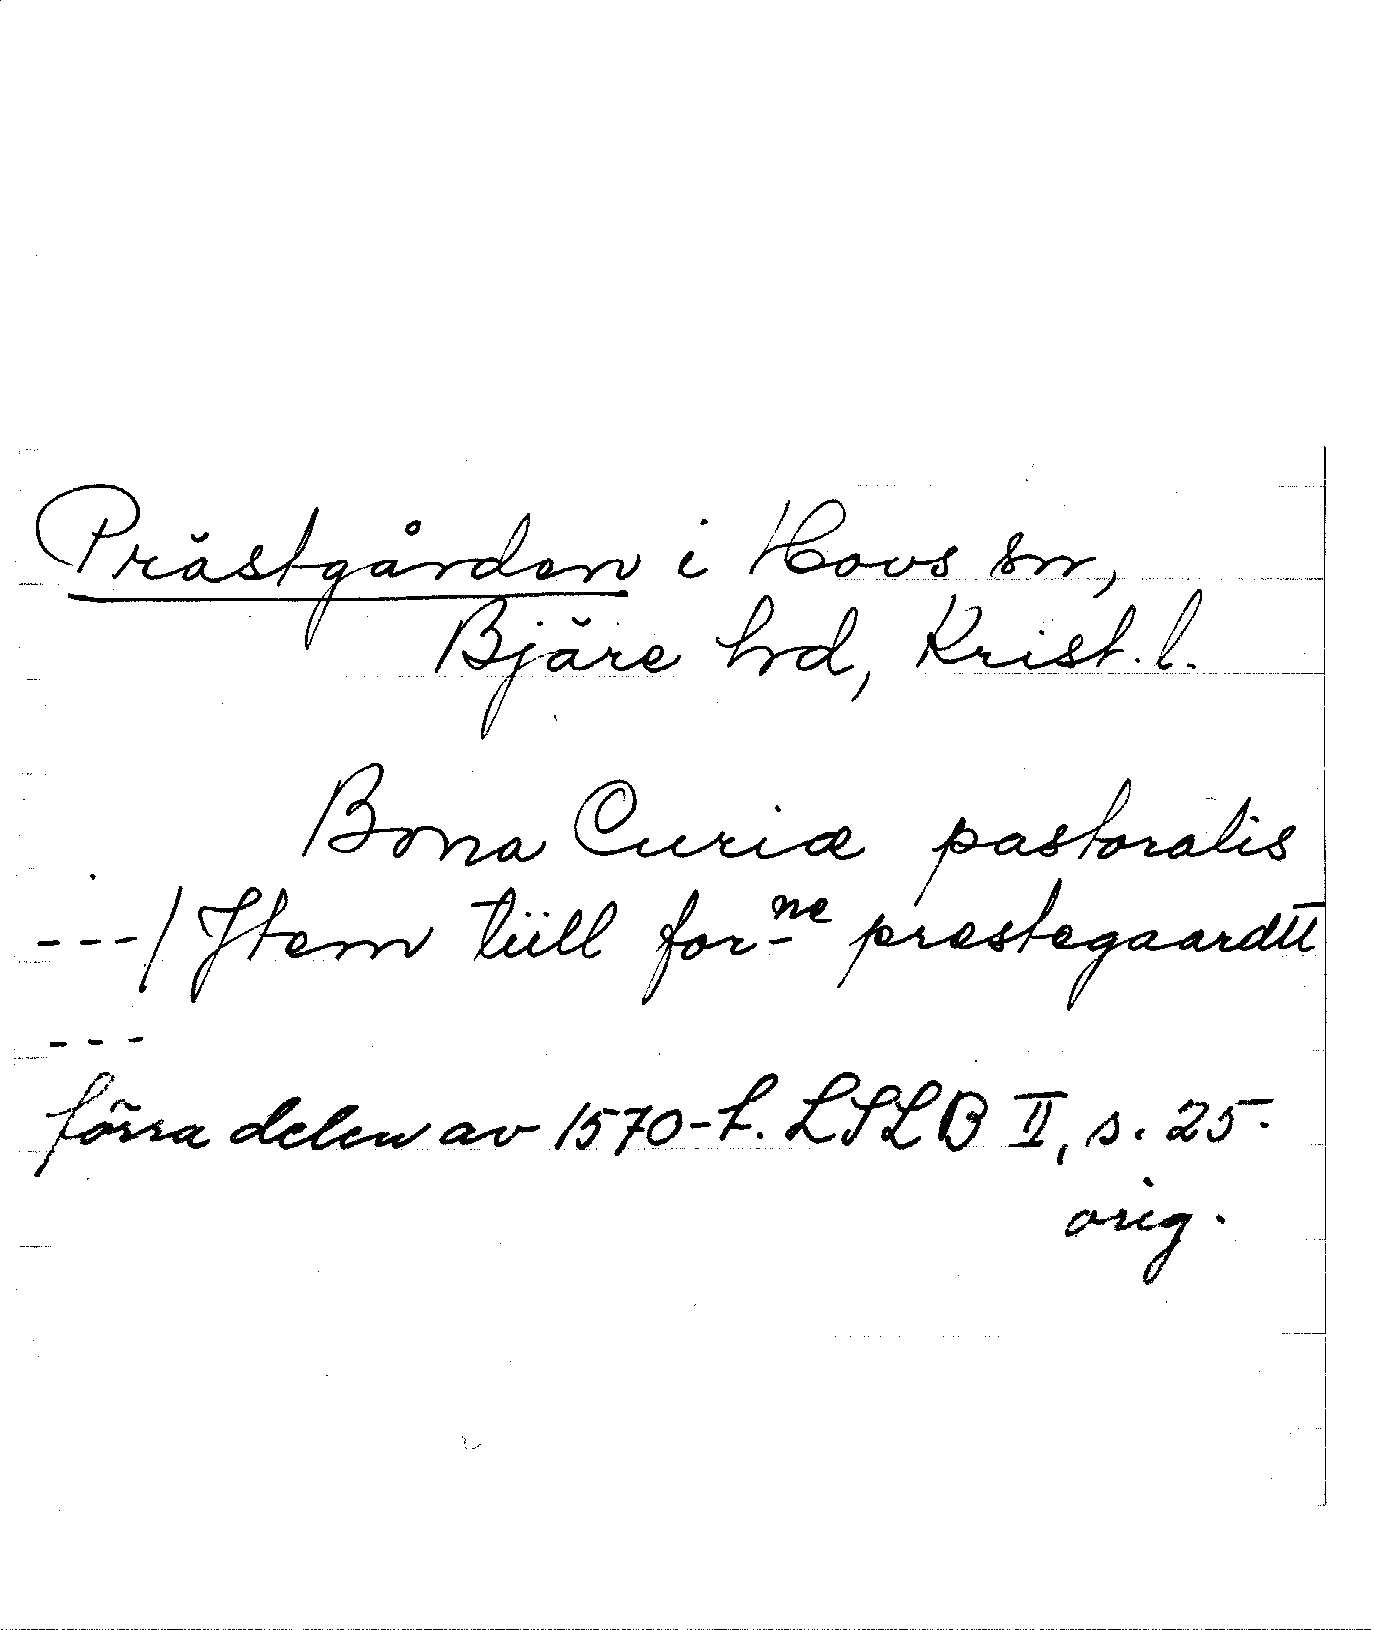 Prästgården i Hovs sn,
Bjäre hd, Krist. l.
Bona Curiæ pastoralis
---/ Jtem tiill for-ne prestegaardtt
---
förra delen av 1570-t. LSLB II, s. 25.
orig.